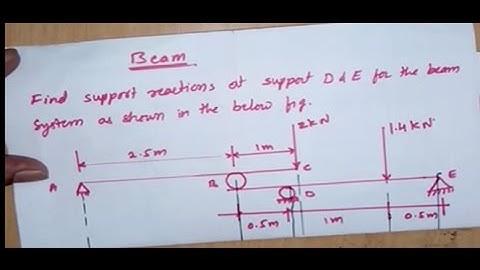 Beam
Find support reactions at support D & E for the beam
System as shown in the below fig.
2kN
1.4kN
2.5m
1m
A
B
C
D
E
0.5m
1m
0.5m